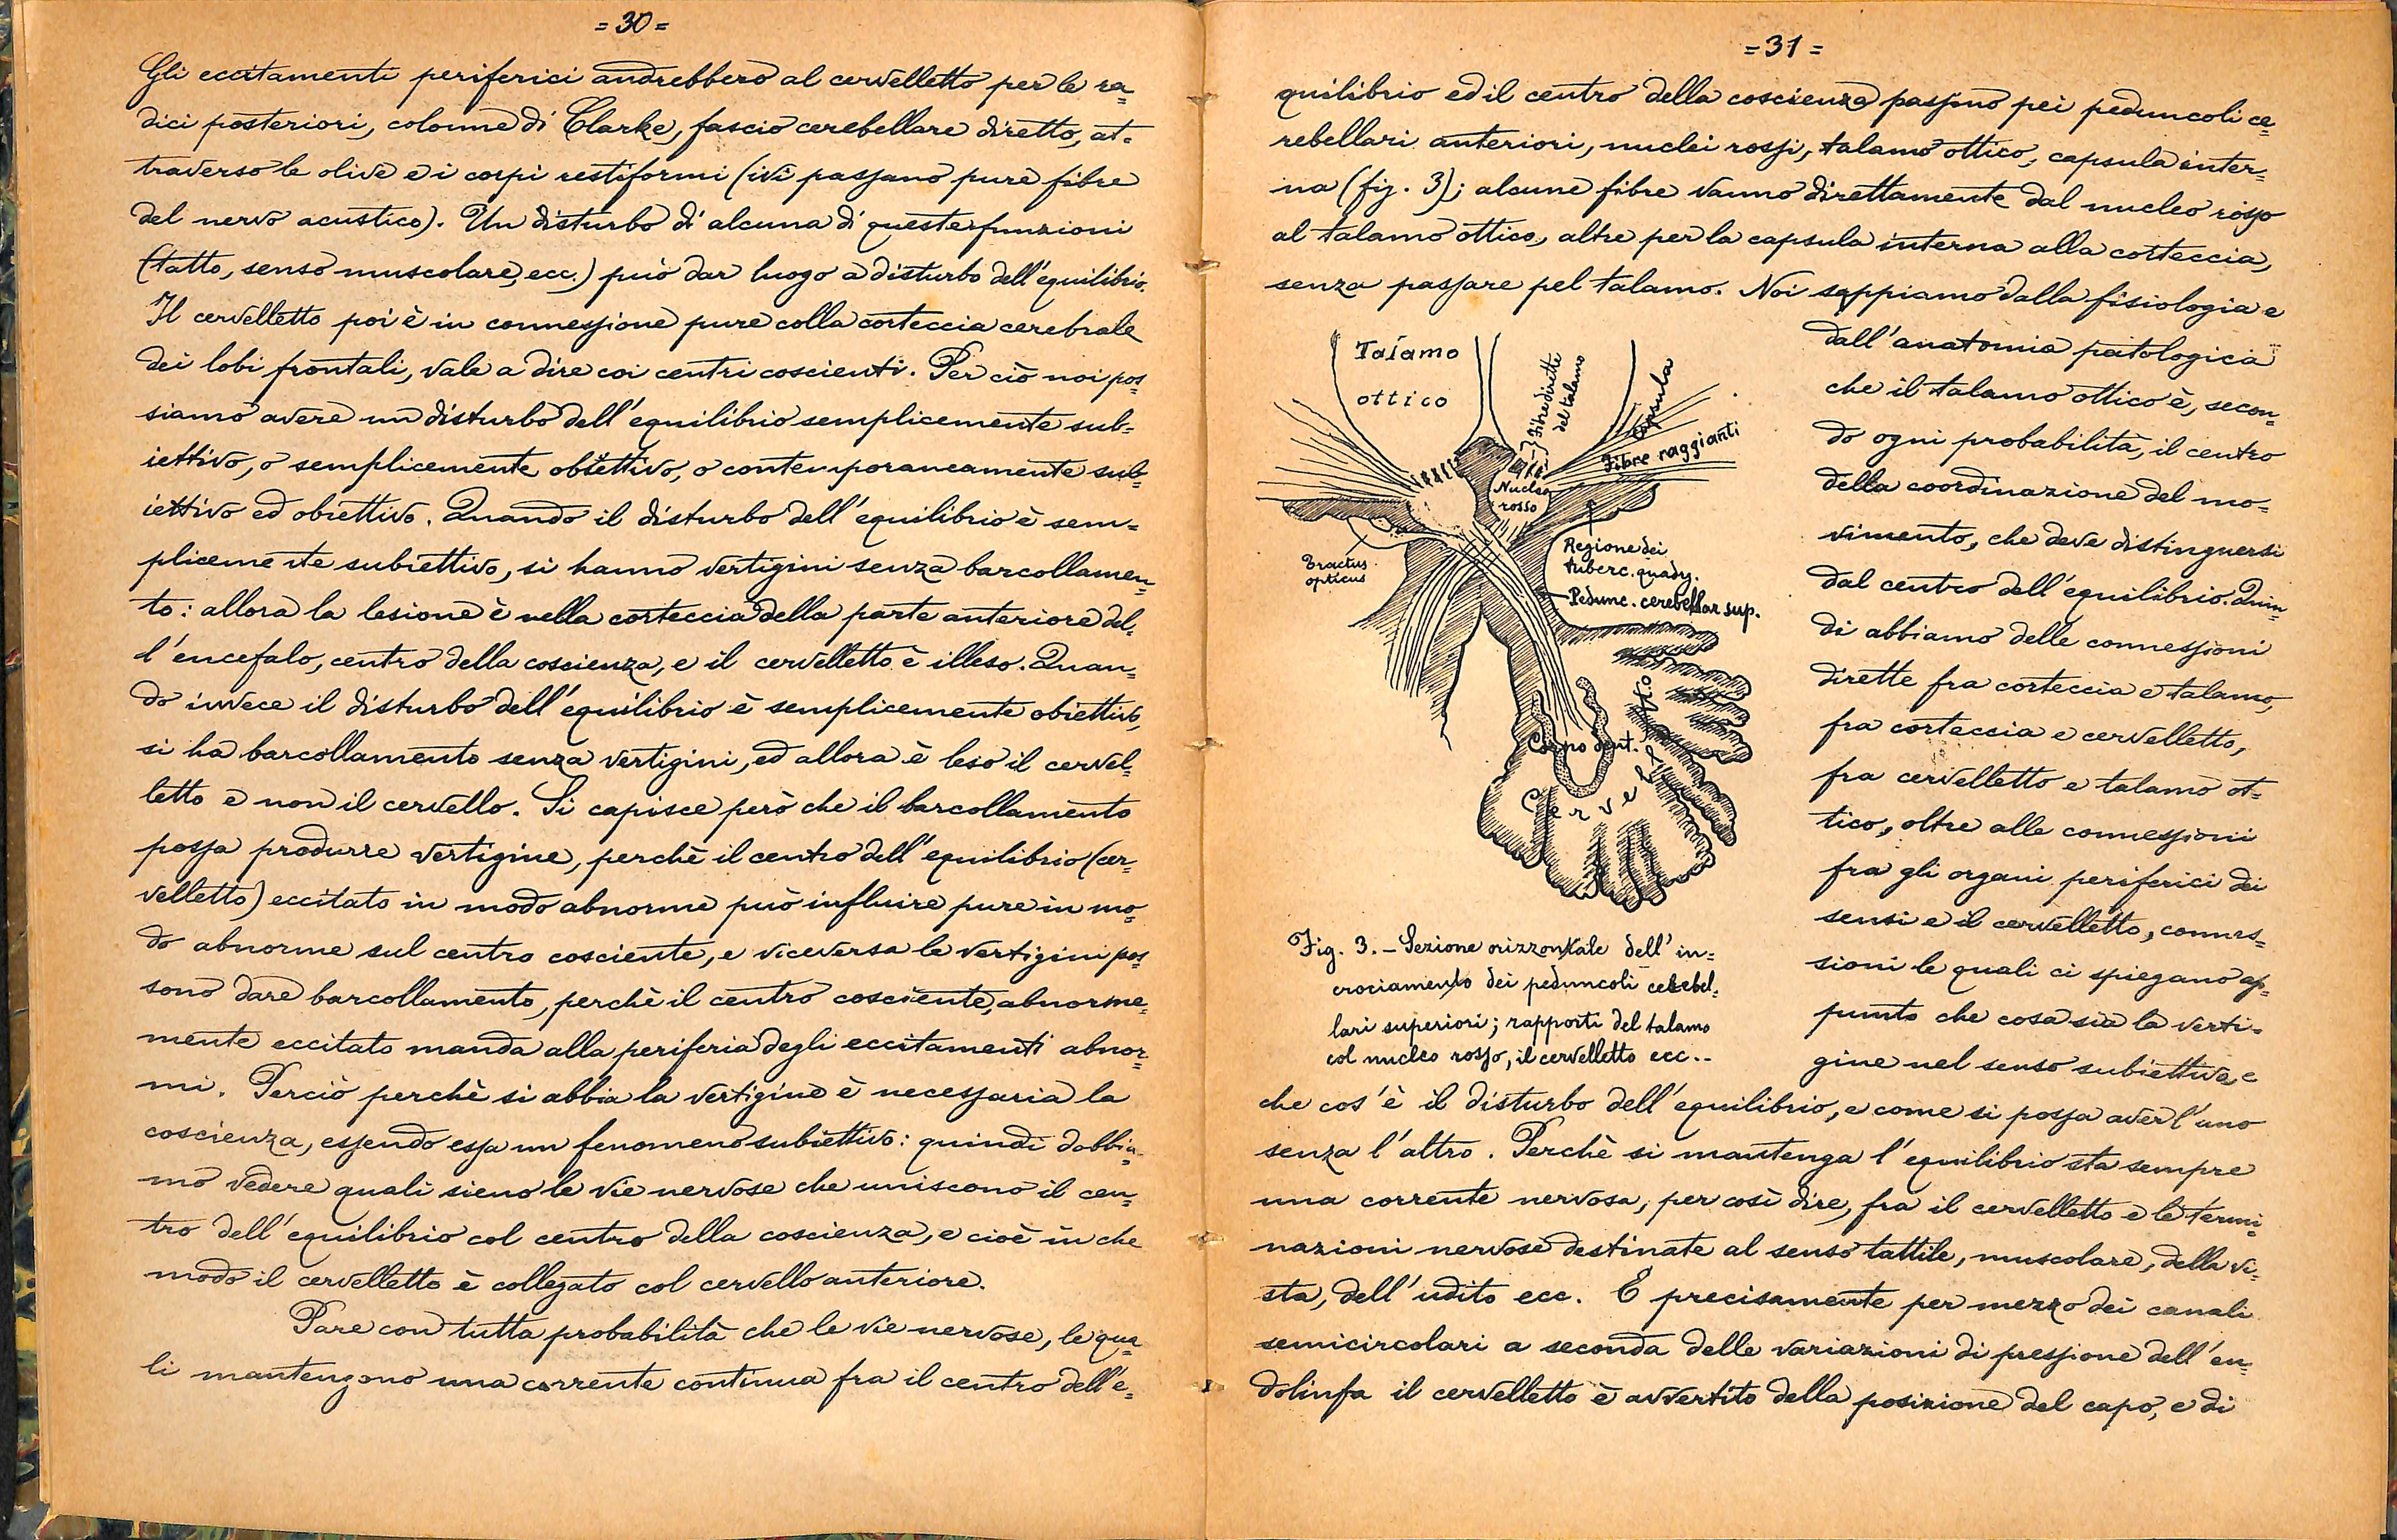 = 30 =
Gli eccitamenti periferici andrebbero al cervelletto per le ra=
dici posteriori, colonne di Clarke, fascio cerebellare diretto, at=
traverso le olive e i corpi restiformi (ivi passano pure fibre
del nervo acustico). Un disturbo di alcuna di queste funzioni
(tatto, senso muscolare, ecc.) può dar luogo a disturbo dell'equilibrio.
Il cervelletto poi è in connessione pure colla corteccia cerebrale
dei lobi frontali, vale a dire coi centri coscienti. Per ciò noi pos=
siamo avere un disturbo dell'equilibrio semplicemente sub=
iettivo, o semplicemente obiettivo, o contemporaneamente sub=
iettivo ed obiettivo. Quando il disturbo dell'equilibrio è sem=
plicemente subiettivo, si hanno vertigini senza barcollamen=
to: allora la lesione è nella corteccia della parte anteriore del=
l'encefalo, centro della coscienza, e il cervelletto è illeso. Quan=
do invece il disturbo dell'equilibrio è semplicemente obiettivo,
si ha barcollamento senza vertigini, ed allora è leso il cervel=
letto e non il cervello. Si capisce però che il barcollamento
possa produrre vertigine, perchè il centro dell'equilibrio (cer=
velletto) eccitato in modo abnorme può influire pure in mo=
do abnorme sul centro cosciente, e viceversa le vertigini pos=
sono dare barcollamento, perchè il centro cosciente, abnorme=
mente eccitato manda alla periferia degli eccitamenti abnor=
mi. Perciò perchè si abbia la vertigine è necessaria la
coscienza, essendo essa un fenomeno subiettivo: quindi dobbia=
mo vedere quali sieno le vie nervose che uniscono il cen=
tro dell'equilibrio col centro della coscienza, e cioè in che
modo il cervelletto è collegato col cervello anteriore.
Pare con tutta probabilità che le vie nervose, le qua=
li mantengono una corrente continua fra il centro dell'e=
= 31 =
quilibrio ed il centro della coscienza passino pei peduncoli ce=
rebellari anteriori, nuclei rossi, talamo ottico, capsula inter=
na (fig. 3); alcune fibre vanno direttamente dal nucleo rosso
al talamo ottico, altre per la capsula interna alla corteccia,
senza passare pel talamo. Noi sappiamo dalla fisiologia e
dall'anatomia patologica
che il talamo ottico è, secon=
do ogni probabilità, il centro
della coordinazione del mo=
vimento, che deve distinguersi
dal centro dell'equilibrio. Quin=
di abbiamo delle connessioni
dirette fra corteccia e talamo,
fra corteccia e cervelletto,
fra cervelletto e talamo ot=
tico, oltre alle connessioni
fra gli organi periferici dei
sensi e il cervelletto, connes=
sioni le quali ci spiegano ap=
punto che cosa sia la verti=
gine nel senso subiettivo, e
Talamo
ottico
Fibre dirette
del talamo
Capsula
Fibre raggianti
Nucleo
rosso
Tractus
opticus
Regione dei
tuberc. quadr.
Pedunc. cerebellar sup.
Corpo dent.
Cervelletto
Fig. 3. – Sezione orizzontale dell'in=
crociamento dei peduncoli cerebel=
lari superiori; rapporti del talamo
col nucleo rosso, il cervelletto ecc. –
che cos'è il disturbo dell'equilibrio, e come si possa aver l'uno
senza l'altro. Perchè si mantenga l'equilibrio sta sempre
una corrente nervosa, per così dire, fra il cervelletto e le termi=
nazioni nervose destinate al senso tattile, muscolare, della vi=
sta, dell'udito ecc. E precisamente per mezzo dei canali
semicircolari a seconda delle variazioni di pressione dell'en=
dolinfa il cervelletto è avvertito della posizione del capo, e di